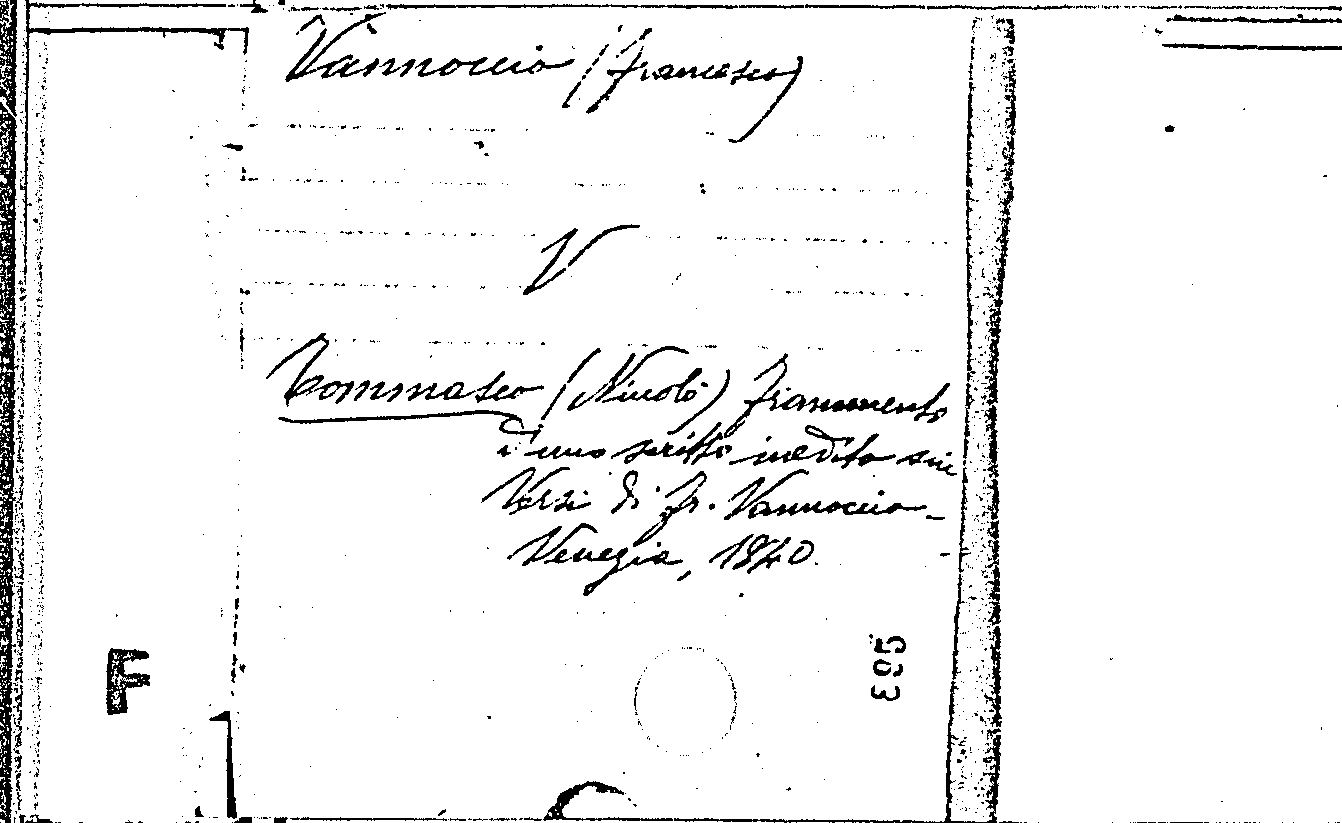 Vannoccio (Francesco)
V
Tommaseo (Nicolò) Frammento
d'uno scritto inedito sui
Versi di Fr. Vannoccio -
Venezia, 1840.
F
593